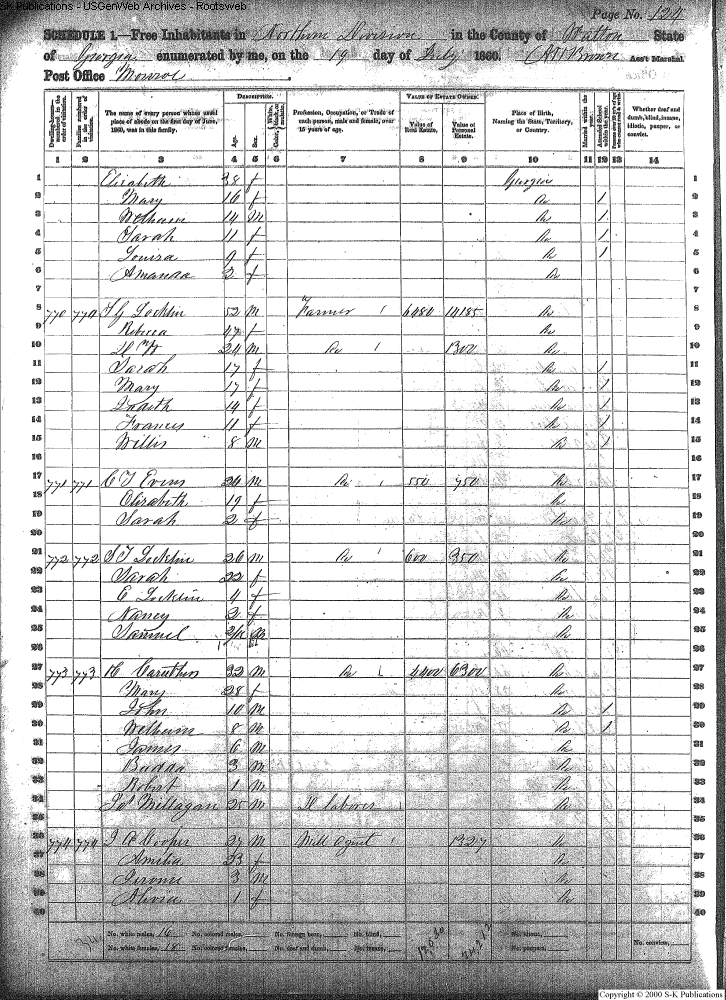 S-K Publications - USGenWeb Archives - Rootsweb
Page No. 124
SCHEDULE 1.—Free Inhabitants in Northern Division in the County of Walton State
of Georgia enumerated by me, on the 19 day of July 1860. Ass't Marshal
Post Office Monroe
DESCRIPTION. VALUE OF ESTATE OWNED.
Dwelling-houses—numbered in the order of visitation. Families numbered in the order of visitation. The name of every person whose usual place of abode on the first day of June, 1860, was in this family. Age. Sex. Color, White, black, or mulatto. Profession, Occupation, or Trade of each person, male and female, over 15 years of age. Value of Real Estate. Value of Personal Estate. Place of Birth, Naming the State, Territory, or Country. Married within the year. Attended School within the year. Whether deaf and dumb, blind, insane, idiotic, pauper, or convict.
1 2 3 4 5 6 7 8 9 10 11 12 13 14
1 Elizabeth 38 f Georgia 1
2 Mary 16 f Do / 2
3 William 14 m Do / 3
4 Sarah 11 f Do / 4
5 Louisa 9 f Do / 5
6 Amanda 2 f Do 6
7 7
8 770 770 Locklin 52 m Farmer 6480 14185 Do 8
9 Rebecca 47 f Do 9
10 24 m Do 1300 Do 10
11 Sarah 17 f Do / 11
12 Mary 17 f Do / 12
13 Judith 14 f Do / 13
14 Frances 11 f Do / 14
15 Willis 8 m Do / 15
16 16
17 771 771 C T Evens 24 m Do 550 Do 17
18 Elizabeth 19 f Do 18
19 Sarah 2 f Do 19
20 20
21 772 772 S T Locklin 26 m Do 600 350 Do 21
22 Sarah 22 f Do 22
23 E Locklin 4 f Do 23
24 Nancy 2 f Do 24
25 Samuel Do 25
26 26
27 773 773 Caruthers 32 m Do 4400 6300 Do 27
28 Mary 28 f Do 28
29 John 10 m Do / 29
30 William 8 m Do / 30
31 James 6 m Do 31
32 3 m Do 32
33 Robert 1 m Do 33
34 Millagan 25 m laborer Do 34
35 35
36 774 774 J A Cooper 27 m Mill Agent 1327 Do 36
37 Amelia 23 f Do 37
38 Jerome 3 m Do 38
39 1 f Do 39
40 40
No. white males, 16 No. colored males, No. foreign born, No. blind, No. idiotic,
No. white females, 18 No. colored females, No. deaf and dumb, No. insane, No. paupers, No. convicts,
Copyright © 2000 S-K Publications